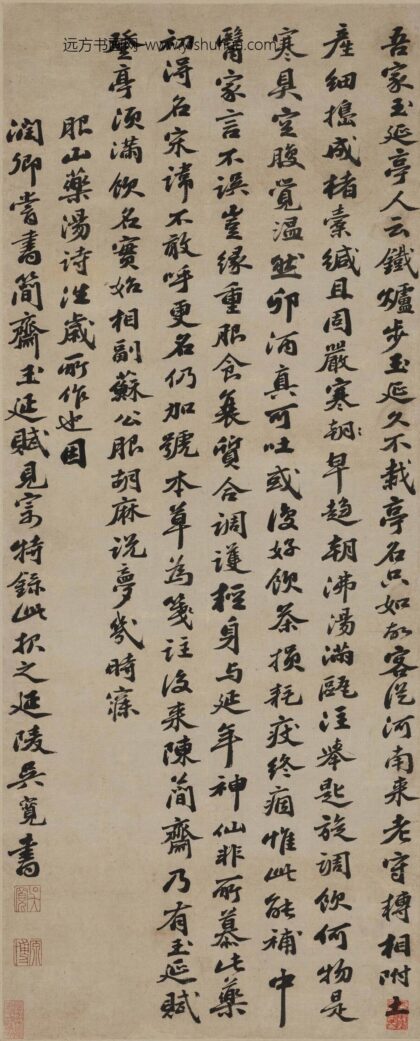 吾家玉延亭人云鐵爐步玉延久不栽亭名只如故客從河南來老守轉相附土
產細擣成楮囊緘且固嚴寒朝早趨朝沸湯滿甌注舉匙旋調飲何物是
寒具空腹覺溫然卯酒真可吐或復好飲茶損耗疾終痼惟此能補中
醫家言不誤豈緣重服食衰質合調護輕身与延年神仙非所慕此藥
初得名宋諱不敢呼更名仍加號本草為箋註後來陳簡齋乃有玉延賦
登亭須滿飲名實始相副蘇公服胡麻說夢幾時寤
服山藥湯詩往歲所作也因
潤卿嘗書簡齋玉延賦見寄特錄此報之延陵吳寬書
吳寬
原博